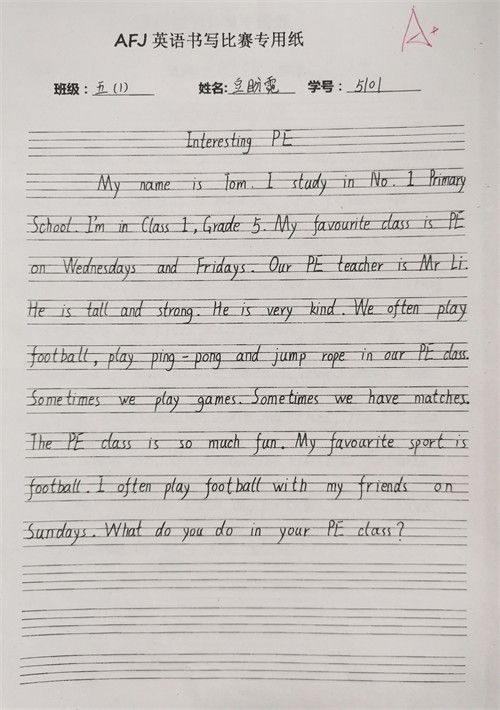 A+
AFJ 英语书写比赛专用纸
班级：五 (1) 姓名: 学号： 5101
Interesting PE
My name is Tom. I study in No. 1 Primary
School. I'm in Class 1, Grade 5. My favourite class is PE
on Wednesdays and Fridays. Our PE teacher is Mr Li.
He is tall and strong. He is very kind. We often play
football, play ping-pong and jump rope in our PE class.
Sometimes we play games. Sometimes we have matches.
The PE class is so much fun. My favourite sport is
football. I often play football with my friends on
Sundays. What do you do in your PE class?